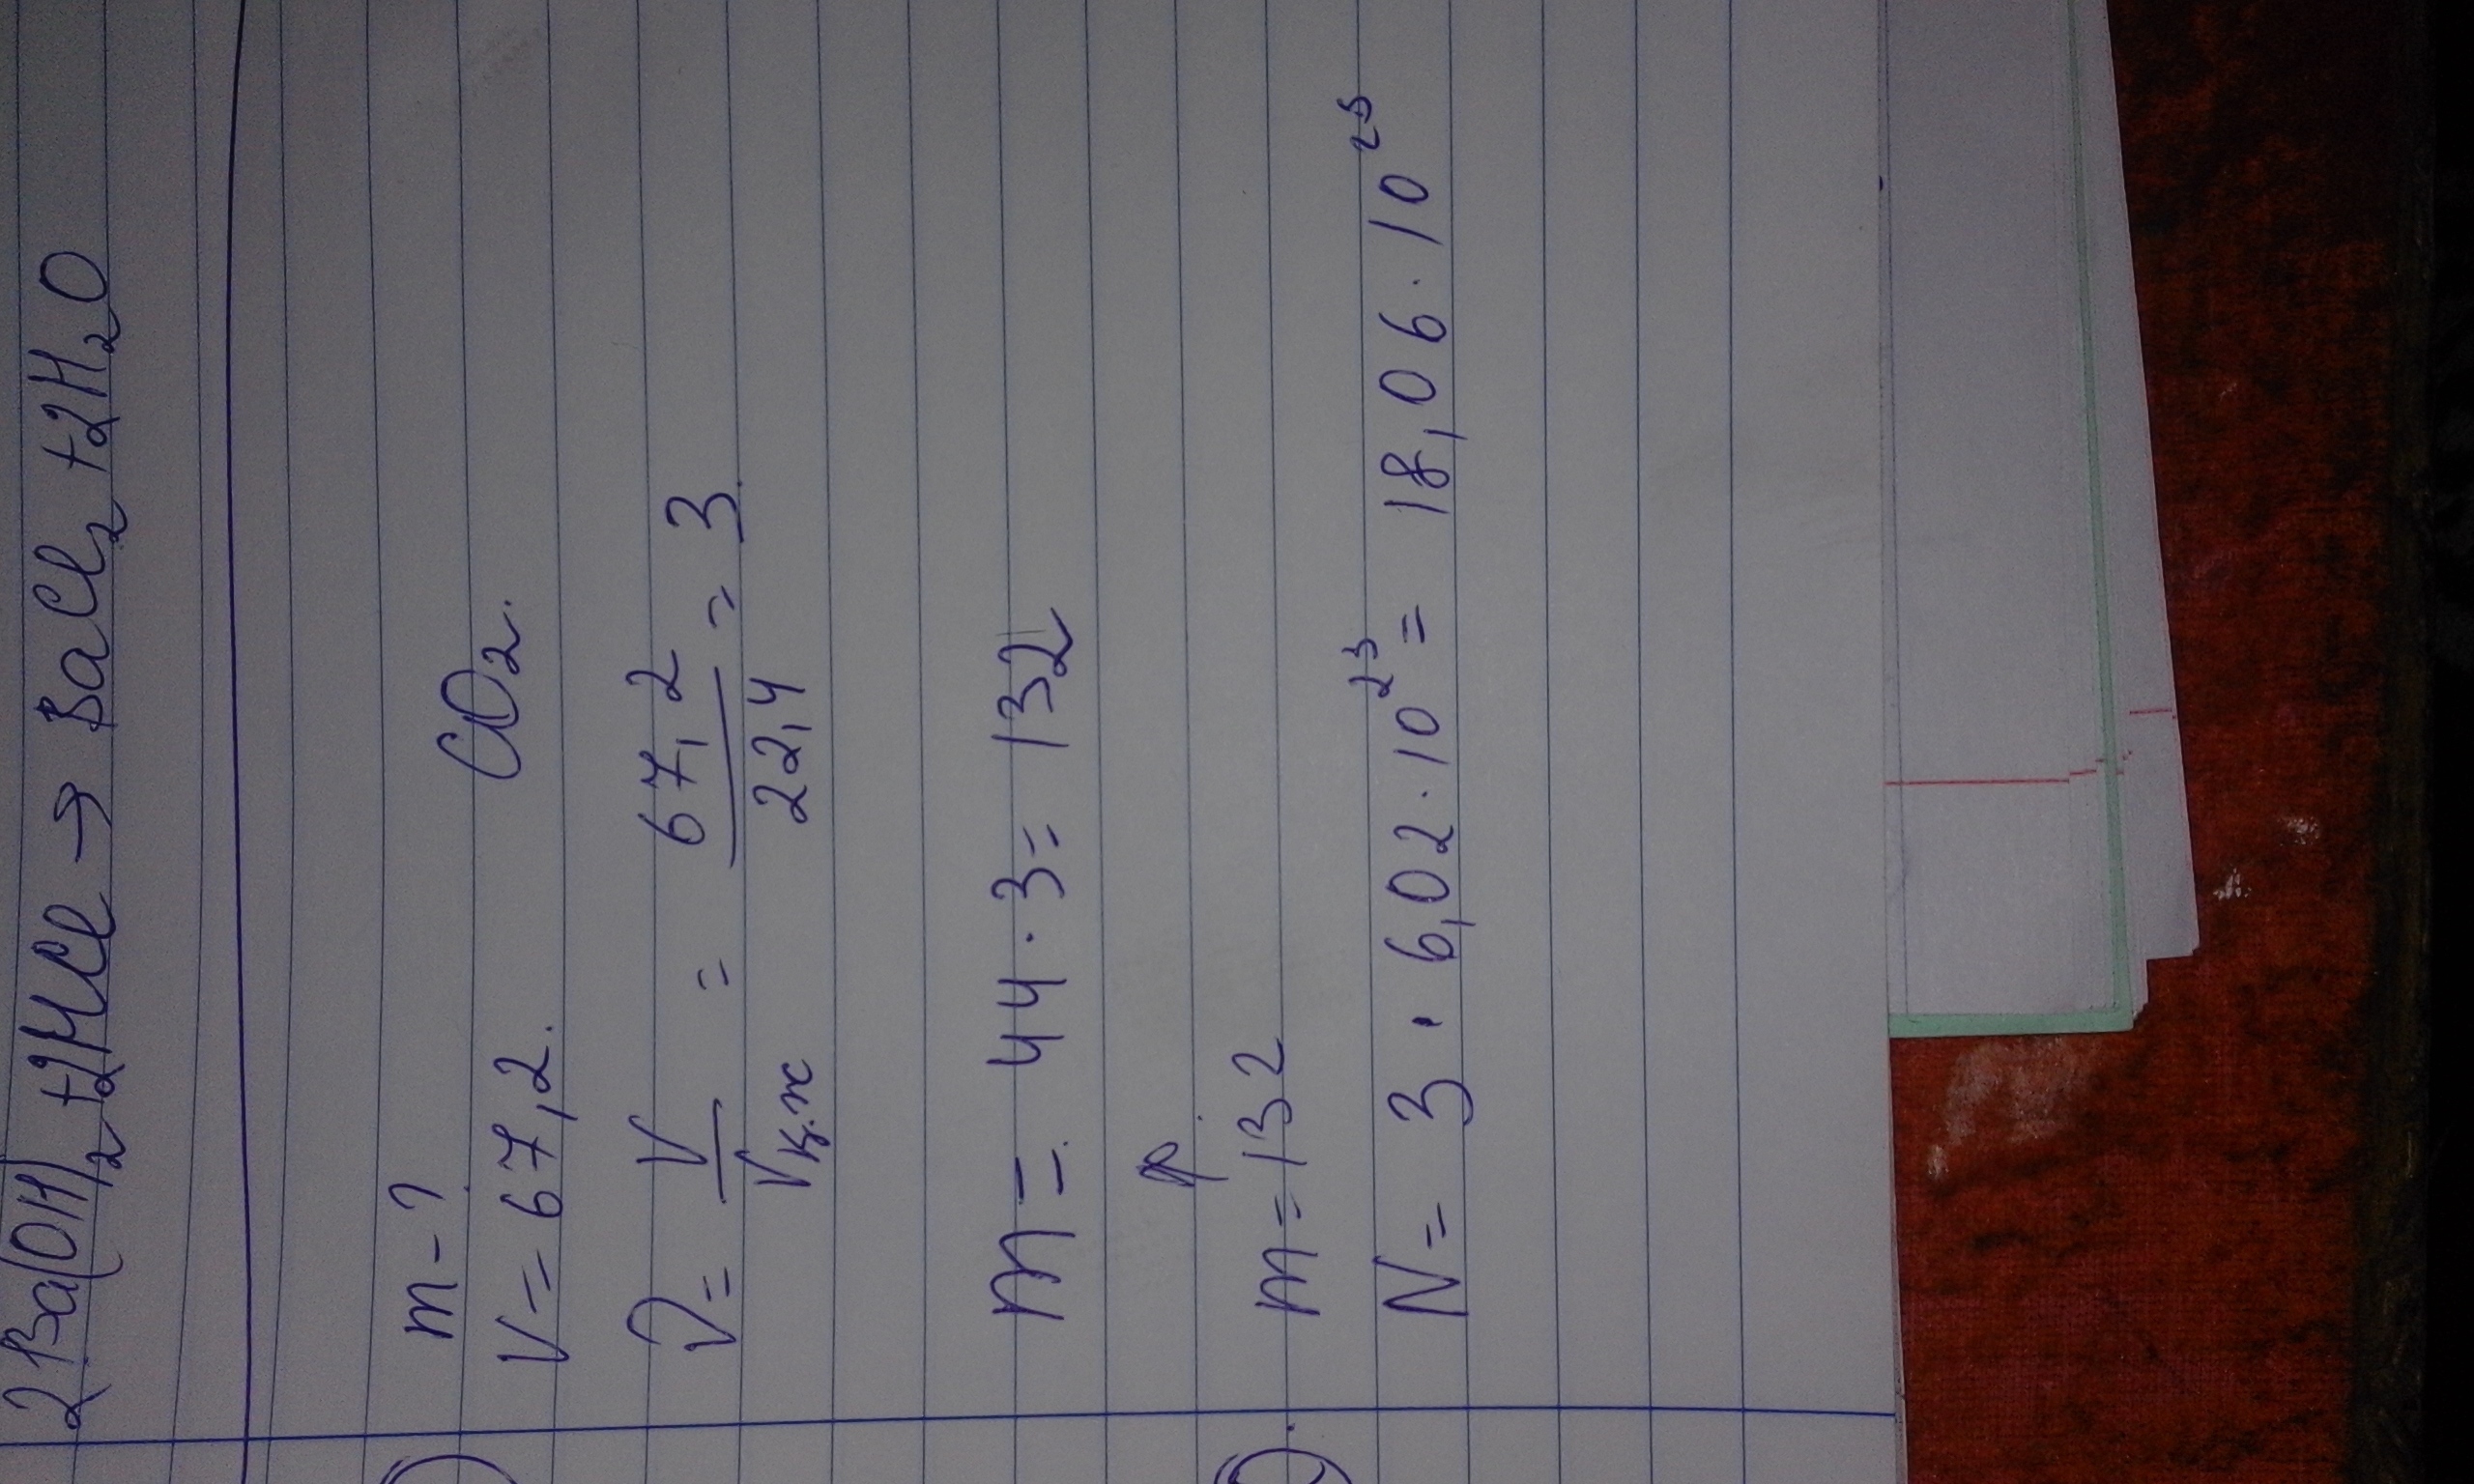 2Ba(OH)₂ +2HCl → BaCl₂ +2H₂O
m-?
V=67,2. CO₂.
ν = V/Vқ.ж = 67,2/22,4 = 3
m= 44·3= 132
m=132
N= 3 · 6,02·10²³ = 18,06·10²³